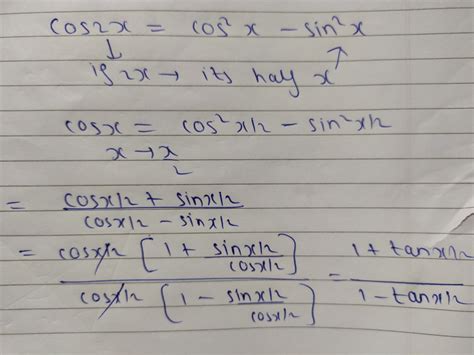 cos2x = cos²x - sin²x
↓
if 2x → its half x
cosx = cos²x/2 - sin²x/2
x → x/2
= (cosx/2 + sinx/2) / (cosx/2 - sinx/2)
= cosx/2 [1 + sinx/2 / cosx/2] / cosx/2 [1 - sinx/2 / cosx/2] = (1 + tanx/2) / (1 - tanx/2)